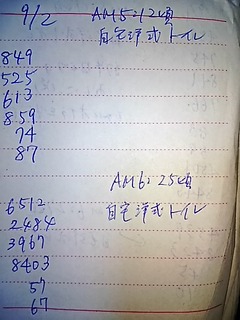 9/2 AM5:12頃
自宅洋式トイレ
849
525
613
859
74
87
AM6:25頃
6512 自宅洋式トイレ
2484
3967
8403
57
67